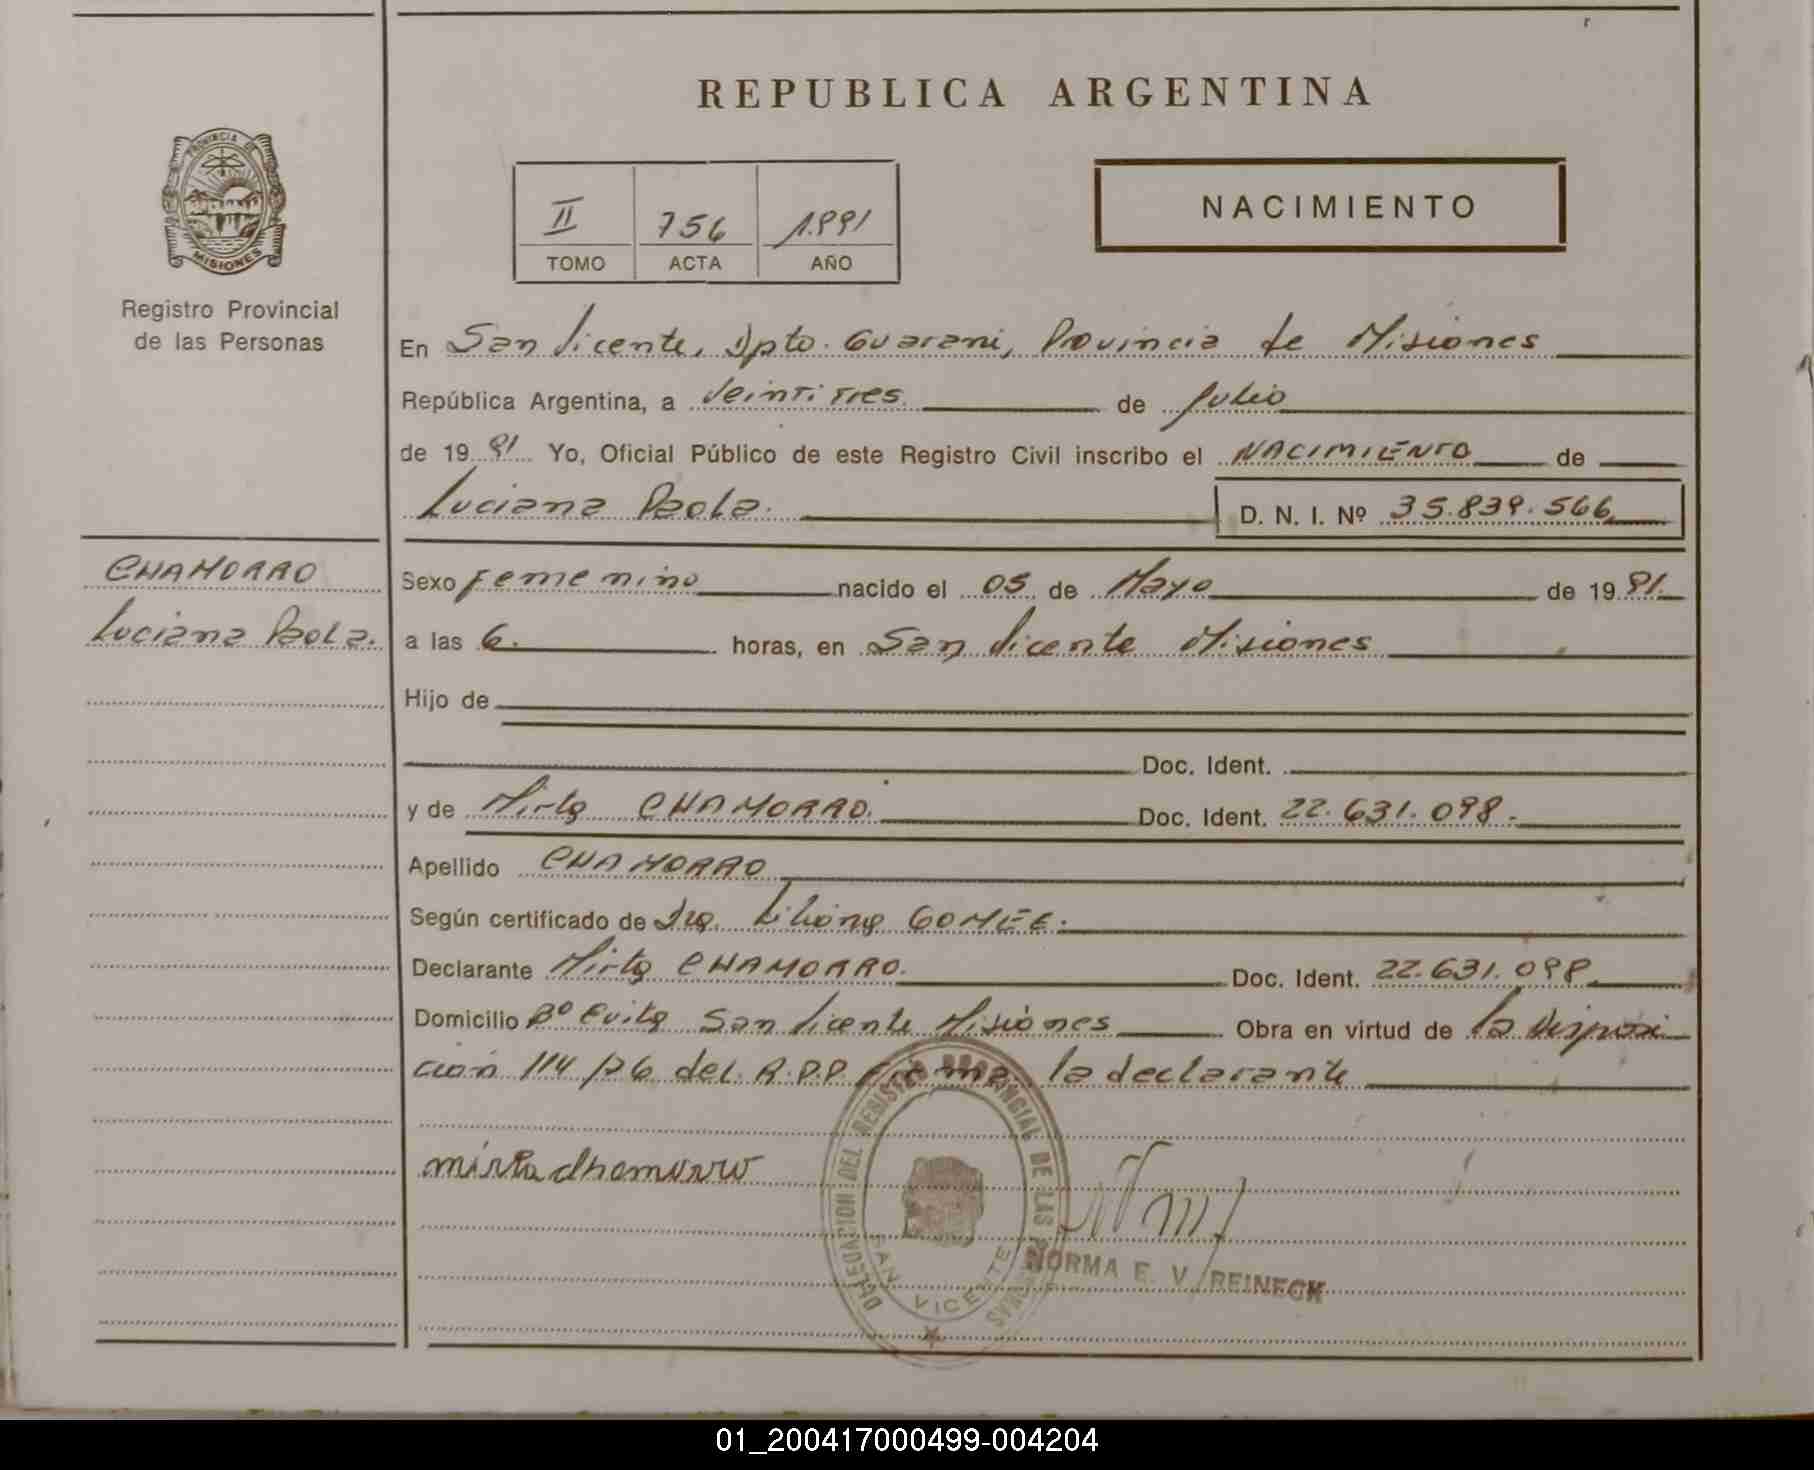 REPUBLICA ARGENTINA
PROVINCIA DE
MISIONES
Registro Provincial
de las Personas
II 756 1.991
TOMO ACTA AÑO
NACIMIENTO
En San Vicente, Dpto. Guarani, Provincia de Misiones
República Argentina, a Veintitres de Julio
de 1991 Yo, Oficial Público de este Registro Civil inscribo el NACIMIENTO de
Luciana Paola. D. N. I. Nº 35.839.566
CHAMORRO
Luciana Paola.
Sexo Femenino nacido el 05 de Mayo de 1991.
a las 6. horas, en San Vicente Misiones
Hijo de
Doc. Ident.
y de Mirta CHAMORRO. Doc. Ident. 22.631.098.
Apellido CHAMORRO
Según certificado de Dra. Liliana GOMEZ.
Declarante Mirta CHAMORRO. Doc. Ident. 22.631.098
Domicilio Bº Evita San Vicente Misiones Obra en virtud de la Disposi
ción 114/76 del R.P.P. Firma la declarante
mirta chamorro
DELEGACION DEL REGISTRO PROVINCIAL DE LAS PERSONAS
SAN VICENTE
NORMA E. V. REINECK
01_200417000499-004204